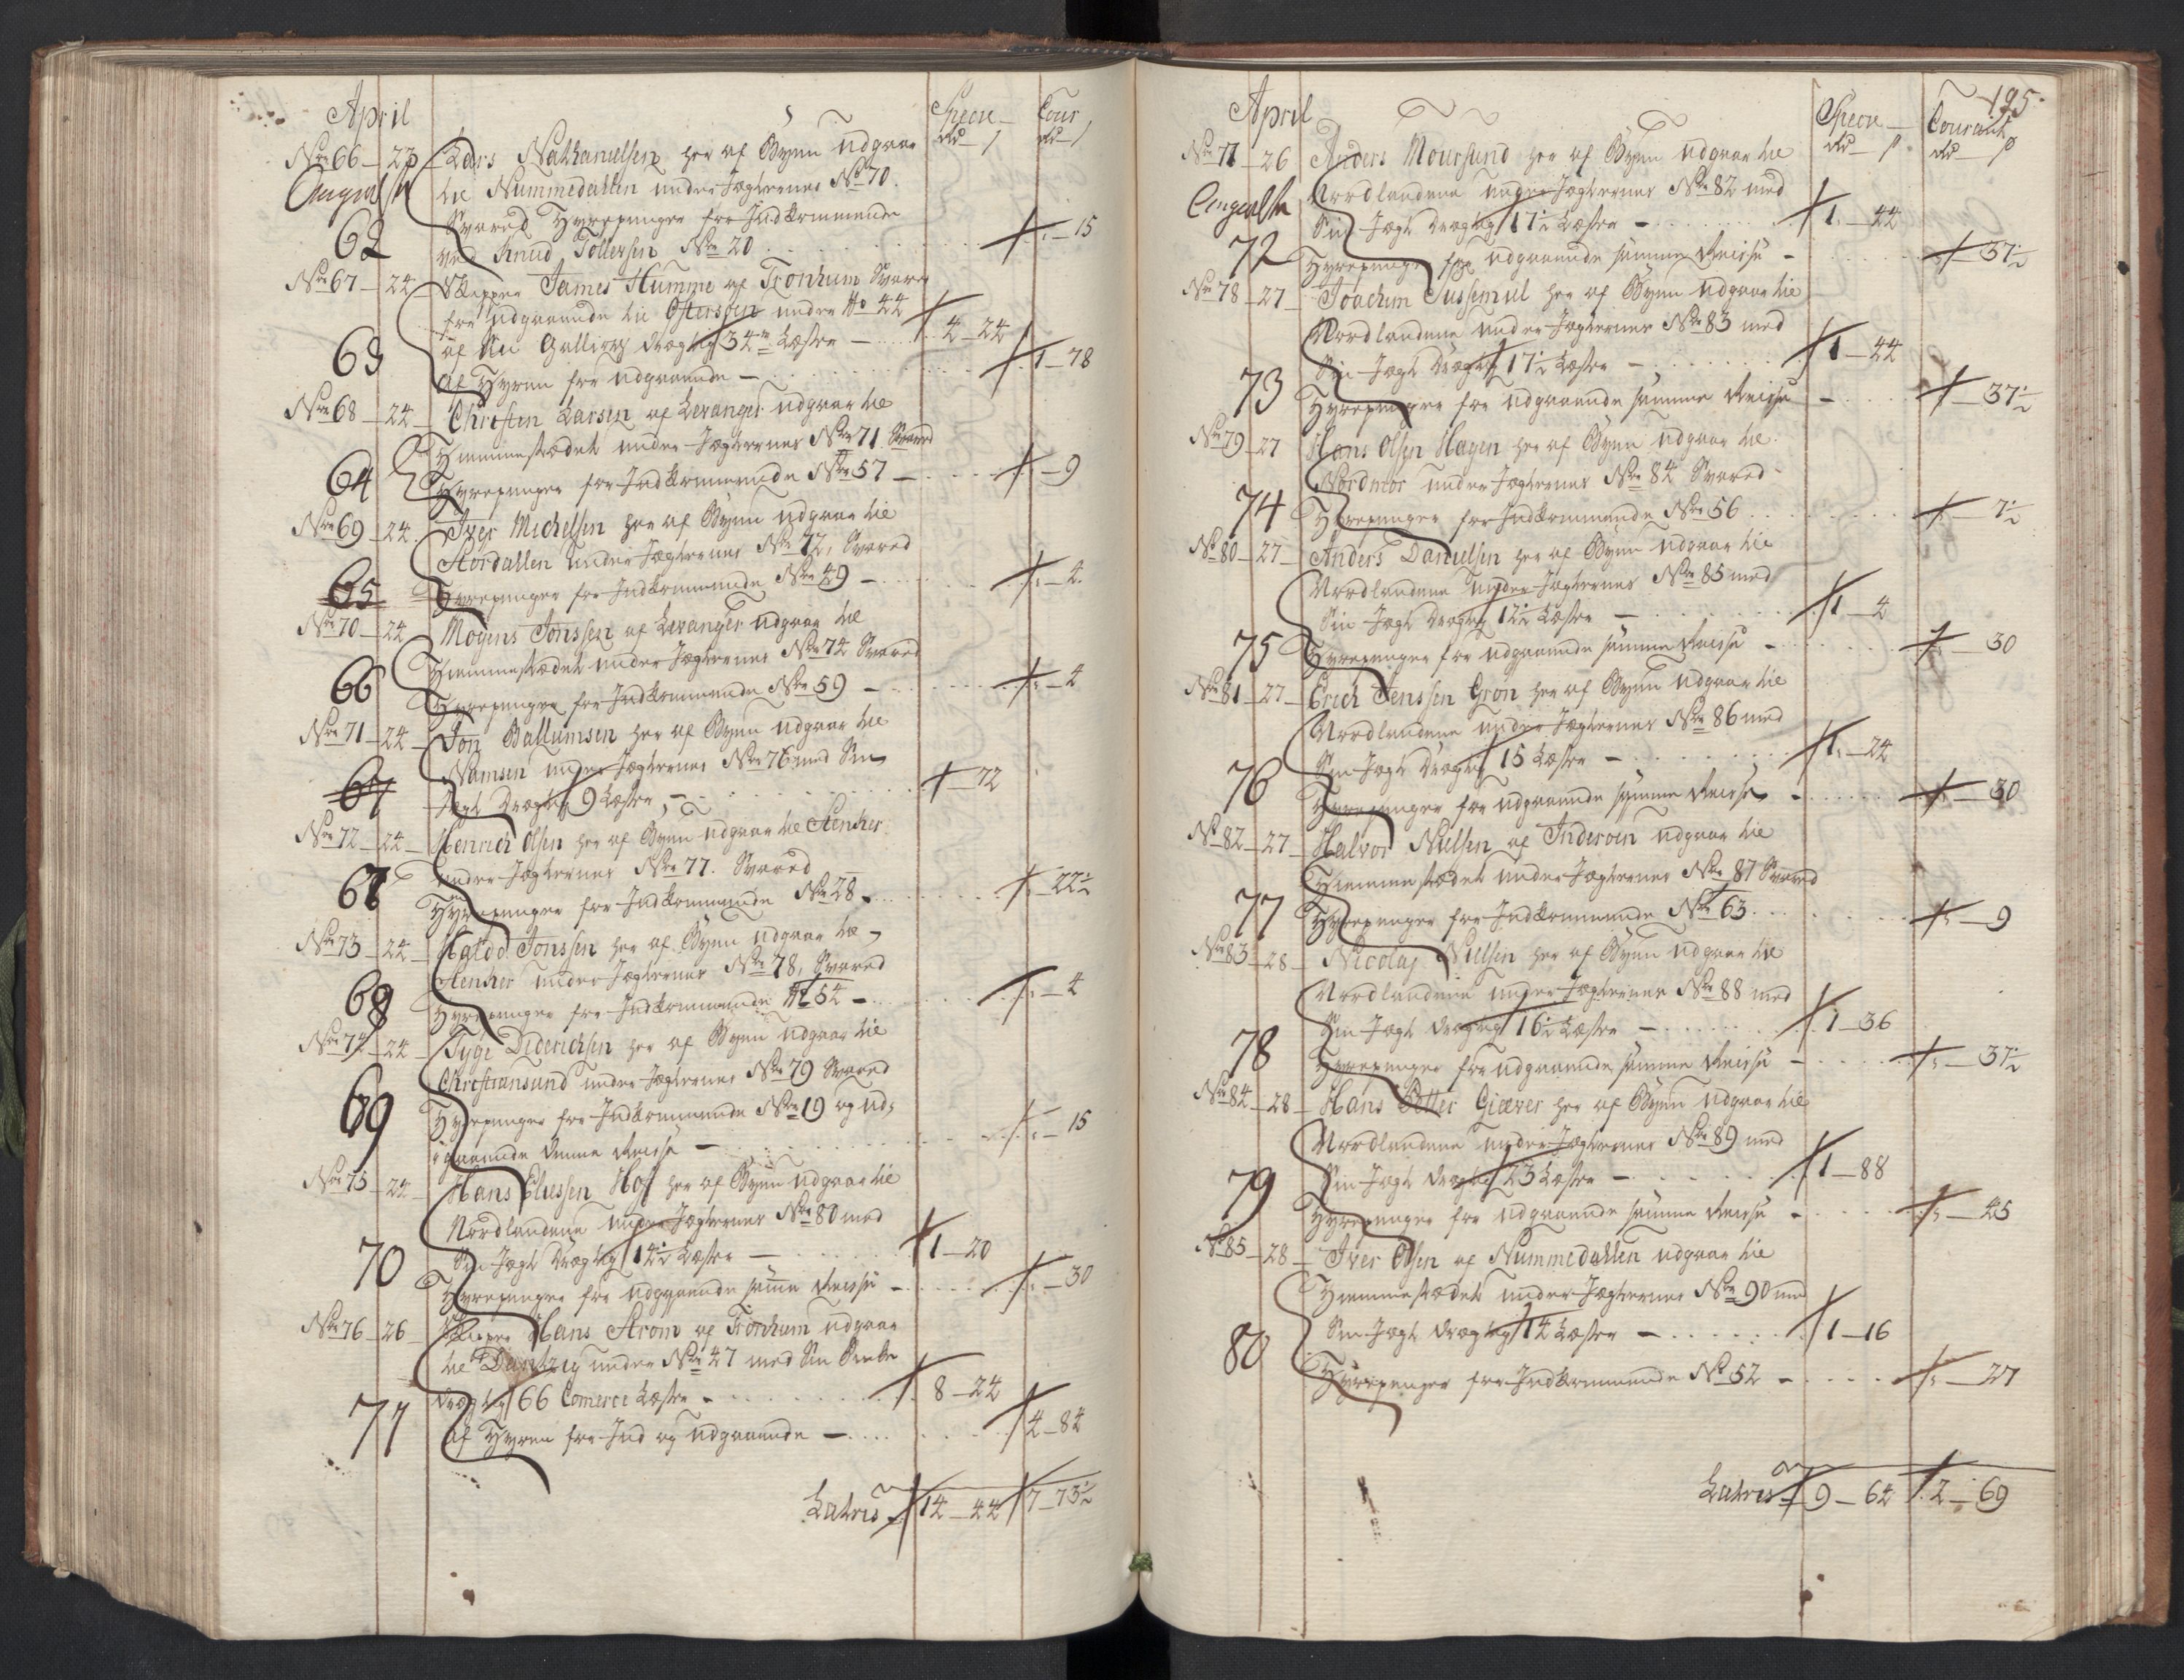 April
Specie
Cour
rd ß
rd ß
No 66 23 Lars Nathanielsen her af Byen udgaar
til Nummedallen under Jægternes No 70.
Svared Hyrepenger for Indkommende
62 ved Knud Tollevsen No 20 15
No 67 24 Skipper James Humme af Tronhiem Svare
for udgaaende til Østersøen under No 44
af Sin Galliory drægtig 34 Læster 4 24
63 af Hyren for udgaaende 1 78
No 68 24 Christen Larsen af Levanger udgaar til
Hiemmestædet under Jægternes No 71 Svared
64 Hyrepenger for Indkommende No 57 9
No 69 24 Iver Michelsen her af Byen udgaar til
Stordallen under Jægternes No 72, Svared
65 Hyrepenger for Indkommende No 49 4
No 70 24 Mogens Jonssen af Levanger udgaar til
Hiemmestædet under Jægternes No 74 Svared
66 Hyrepenger for Indkommende No 59 4
No 71 24 Jon Ballumsen her af Byen udgaar til
Namsen under Jægternes No 76 med Sin
67 Jægt drægtig 9 Læster 72
No 72 24 Henrich Olsen her af Byen udgaar til Stenker
under Jægternes No 77. Svared
67 Hyrepenger for Indkommende No 28 22½
No 73 24 Haldo Jonssen her af Byen udgaar til
Stenker under Jægternes No 78, Svared
68 Hyrepenger for Indkommende No 54 4
No 74 24 Tyge Diderichsen her af Byen udgaar til
Christiansund under Jægternes No 79 Svared
69 Hyrepenger for Indkommende No 19 og ud=
gaaende denne Reise 15
No 75 24 Hans Eliessen Hof her af Byen udgaar til
Nordlandene under Jægternes No 80 med
70 Sin Jægt drægtig 14½ Læster 1 20
Hyrepenger for udgaaende samme Reise 30
No 76 26 Skipper Hans Strom af Tronhiem udgaar
til Dantzig under No 47 med Sin
drægtig 66 Comerce Læster 8 24
71 af Hyren for Ind og udgaaende 4 84
Latris 14 44 7 73½
195
April
Specie
Courant
rd ß
rd ß
No 77 26 Anders Moursund her af Byen udgaar til
Nordlandene under Jægternes No 82 med
Sin Jægt drægtig 17½ Læster 1 44
72 Hyrepenge for udgaaende samme Reise 37½
No 78 27 Joachim Sussemiel her af Byen udgaar til
Nordlandene under Jægternes No 83 med
Sin Jægt drægtig 17½ Læster 1 44
73 Hyrepenger for udgaaende samme Reise 37½
No 79 27 Hans Olsen Hagen her af Byen udgaar til
Nordmør under Jægternes No 84 Svared
74 Hyrepenger for Indkommende No 56 7½
No 80 27 Anders Danielsen her af Byen udgaar til
Nordlandene under Jægternes No 85 med
Sin Jægt drægtig 12½ Læster 1 4
75 Hyrepenger for udgaaende samme Reise 30
No 81 27 Erich Jenssen Grøn her af Byen udgaar til
Nordlandene under Jægternes No 86 med
Sin Jægt drægtig 15 Læster 1 24
76 Hyrepenger for udgaaende samme Reise 30
No 82 27 Halvor Nielsen af Inderøen udgaar til
Hiemmestædet under Jægternes No 87 Svared
77 Hyrepenger for Indkommende No 63 9
No 83 28 Nicolaj Nielsen her af Byen udgaar til
Nordlandene under Jægternes No 88 med
Sin Jægt drægtig 16½ Læster 1 36
78 Hyrepenger for udgaaende samme Reise 37½
No 84 28 Hans Petter Giæver her af Byen udgaar til
Nordlandene under Jægternes No 89 med
Sin Jægt drægtig 23 Læster 1 88
79 Hyrepenger for udgaaende samme Reise 45
No 85 28 Iver Olsen af Nummedallen udgaar til
Hiemmestædet under Jægternes No 90 med
Sin Jægt drægtig 14 Læster 1 16
80 Hyrepenger for Indkommende No 52 27
Latris 9 64 2 69